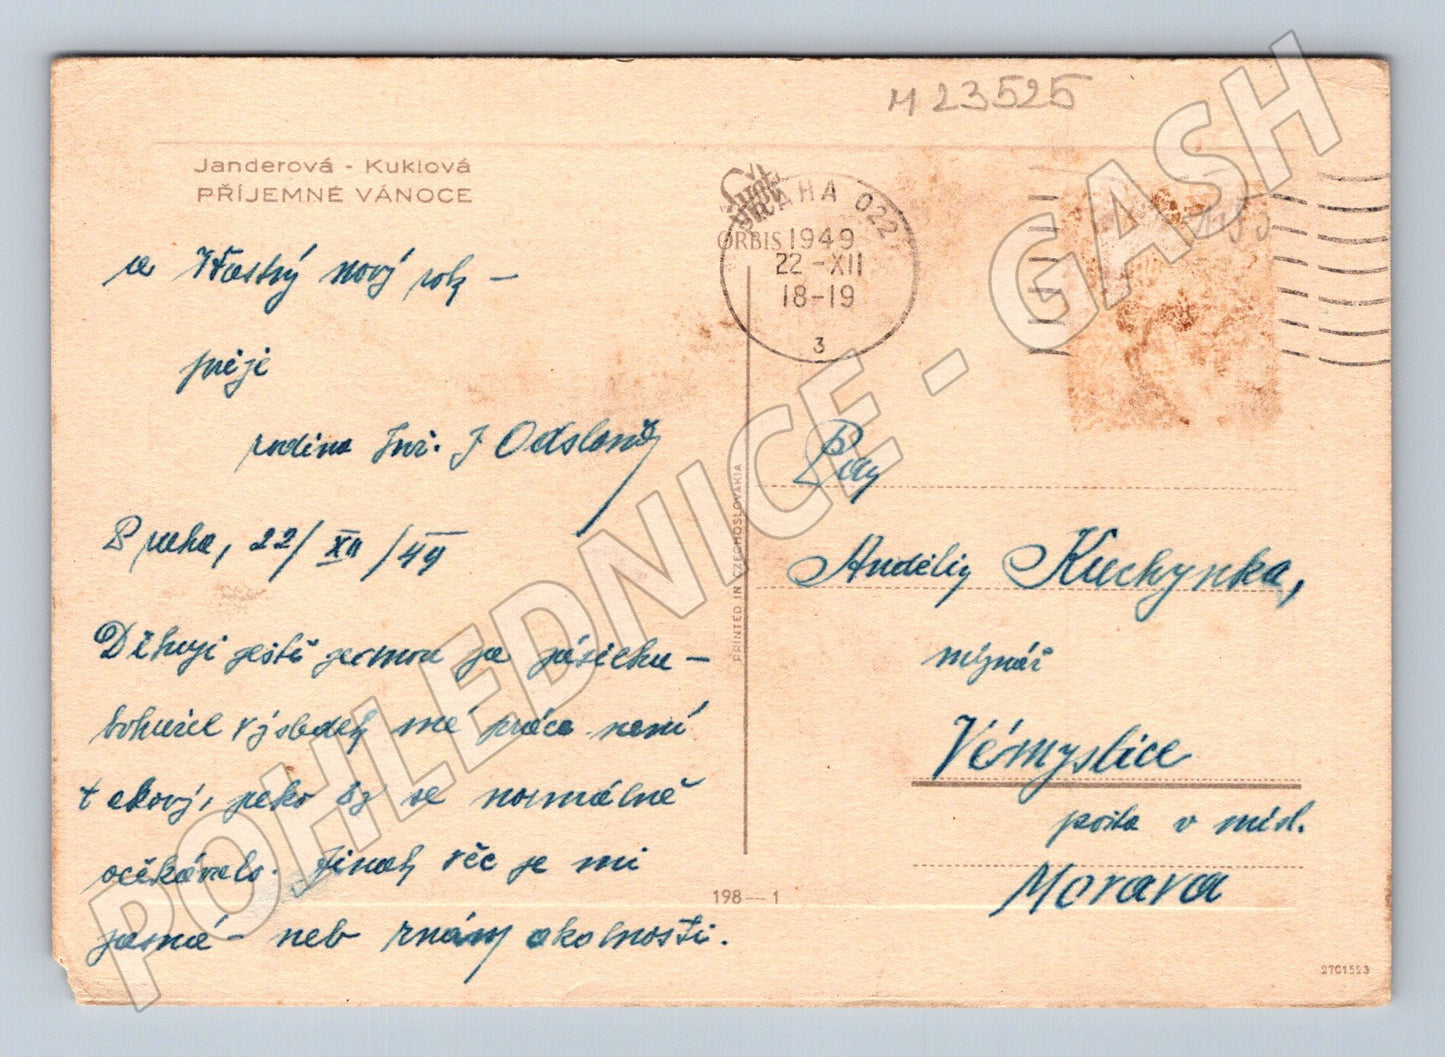 M 23525
Janderová - Kuklová
PŘÍJEMNÉ VÁNOCE
a šťastný nový rok -
přeje
rodina Inž. J Odsloník
Praha, 22/XII/49
Děkuji ještě jednou za zásilku -
bohužel výsledek mé práce není
takový, jako by se normálně
očekávalo. Jinak věc je mi
jasná - neb znám okolnosti.
PRAHA 022
ORBIS
1949
22-XII
18-19
3
PRINTED IN CZECHOSLOVAKIA
198—1
Pan
Andělín Kuchynka,
mlynář
Vémyslice
pošta v míst.
Morava
27C1523
POHLEDNICE - GASH